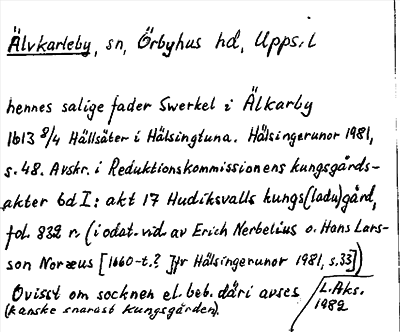 Älvkarleby, sn, Örbyhus hd, Upps. l
hennes salige fader Swerkel i Älkarby
1613 8/4 Hällsäter i Hälsingtuna. Hälsingerunor 1981,
s. 48. Avskr. i Reduktionskommissionens kungsgårds-
akter bd I: akt 17 Hudiksvalls kungs(ladu)gård,
fol. 832 r. (i odat. vid. av Erich Nerbelius o. Hans Lars-
son Noræus [1660-t.? Jfr Hälsingerunor 1981, s. 33])
Ovisst om socknen el. beb. däri avses
(kanske snarast kungsgården).
L. Aks.
1982